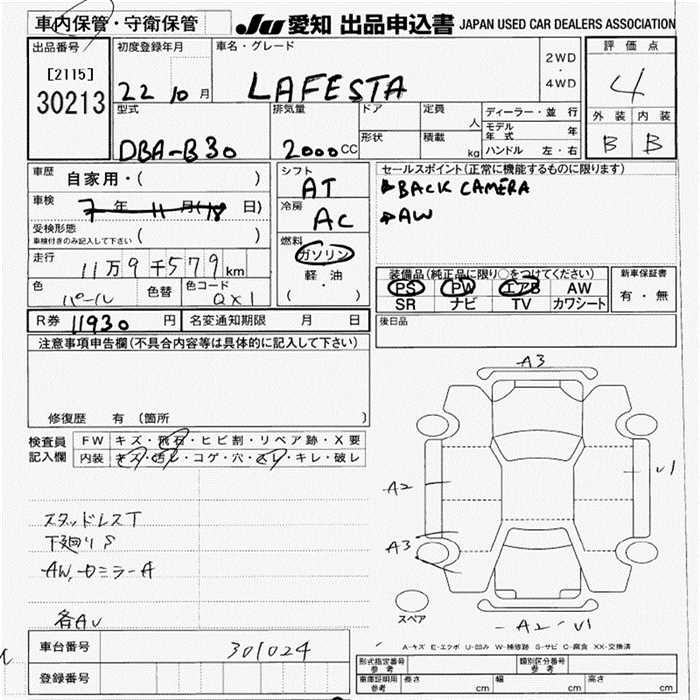 車内保管・守衛保管
JU 愛知 出品申込書 JAPAN USED CAR DEALERS ASSOCIATION
出品番号
[2115]
30213
初度登録年月
22 10 月
車名・グレード
LAFESTA
2WD
・
4WD
評価点
4
外装 内装
B B
型式
DBA-B30
排気量
2000 CC
ドア
形状
定員
人
積載
kg
ディーラー・並行
モデル年式 年
ハンドル 左・右
車歴 自家用・( )
車検 7 年 11 月(18 日)
受検形態
車検付きのみ記入して下さい ( )
走行
11万9千579 km
色
パール
色替
色コード
QX1
シフト
AT
冷房
AC
燃料
ガソリン
・
軽・油
( ・ )
セールスポイント(正常に機能するものに限ります)
BACK CAMERA
AW
装備品(純正品に限り○をつけてください)
PS PW エアB AW
SR ナビ TV カワシート
新車保証書
有・無
後日品
R券 11930 円 名変通知期限 月 日
注意事項申告欄(不具合内容等は具体的に記入して下さい)
修復歴 有(箇所 )
検査員
記入欄
FW キズ・飛石・ヒビ割・リペア跡・X要
内装 キズ・汚レ・コゲ・穴・スレ・キレ・破レ
スタッドレスT
下廻りS
AW,ロミラーA
各AU
A3
A2
A3
U1
A2 U1
スペア
A-キズ E-エクボ U-凹み W-補修跡 S-サビ C-腐食 XX-交換済
車台番号 301024
登録番号
形式指定番号
参考
類別区分番号
参考
車庫証明用
参考
長さ cm 幅 cm 高さ cm